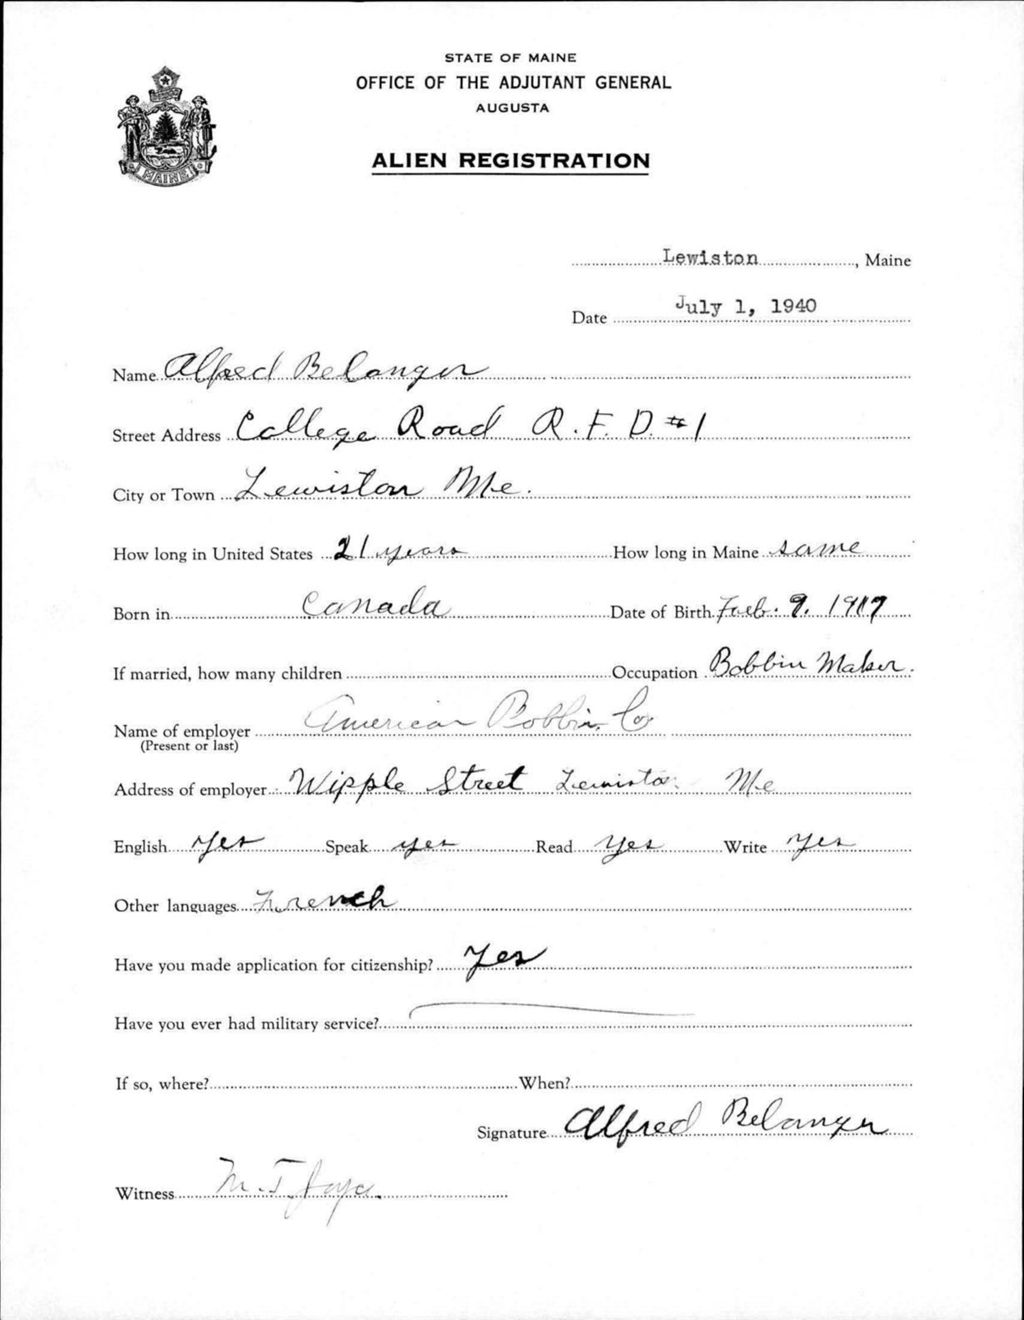 STATE OF MAINE
OFFICE OF THE ADJUTANT GENERAL
AUGUSTA
ALIEN REGISTRATION
MAINE
Lewiston, Maine
Date July 1, 1940
Name Alfred Belanger
Street Address College Road R.F.D. #1
City or Town Lewiston Me.
How long in United States 21 years How long in Maine same
Born in Canada Date of Birth Feb. 9. 1917
If married, how many children Occupation Bobbin Maker.
Name of employer American Bobbin Co
(Present or last)
Address of employer Wipple Street Lewiston Me
English Yes Speak yes Read Yes Write Yes
Other languages French
Have you made application for citizenship? Yes
Have you ever had military service?
If so, where? When?
Signature Alfred Belanger
Witness M. T.